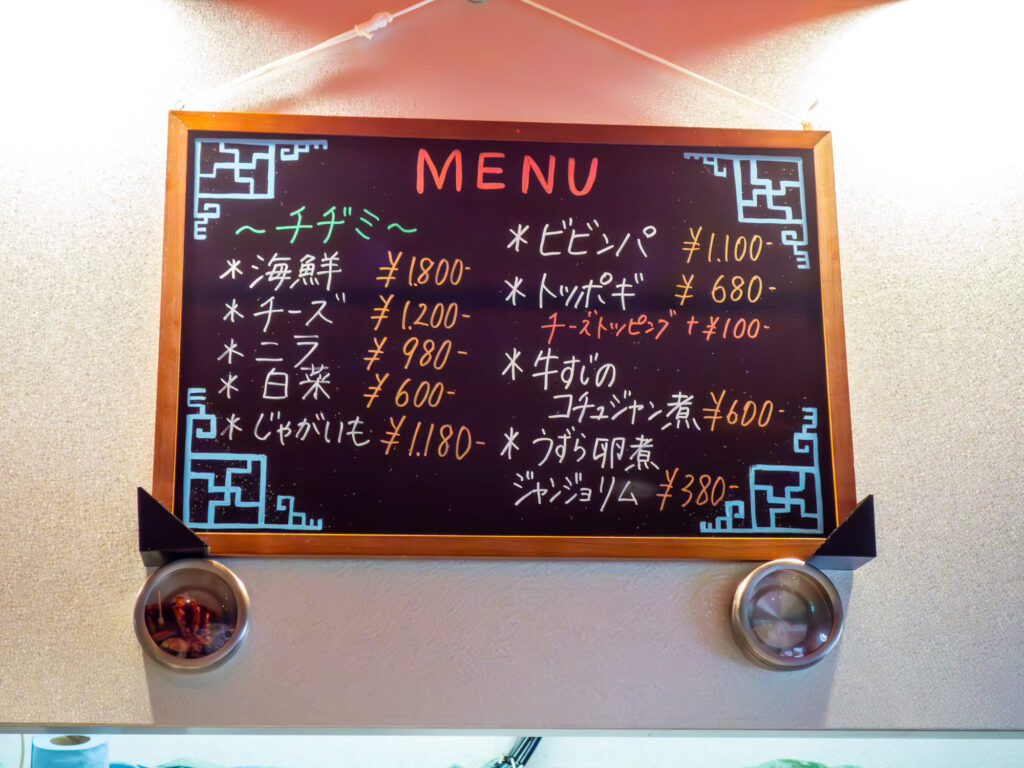 MENU
～チヂミ～
*海鮮 ¥1.800-
*チーズ ¥1.200-
*ニラ ¥980-
*白菜 ¥600-
*じゃがいも ¥1.180-
*ビビンパ ¥1.100-
*トッポギ ¥680-
チーズトッピング +¥100-
*牛すじの
コチュジャン煮 ¥600-
*うずら卵煮
ジャンジョリム ¥380-